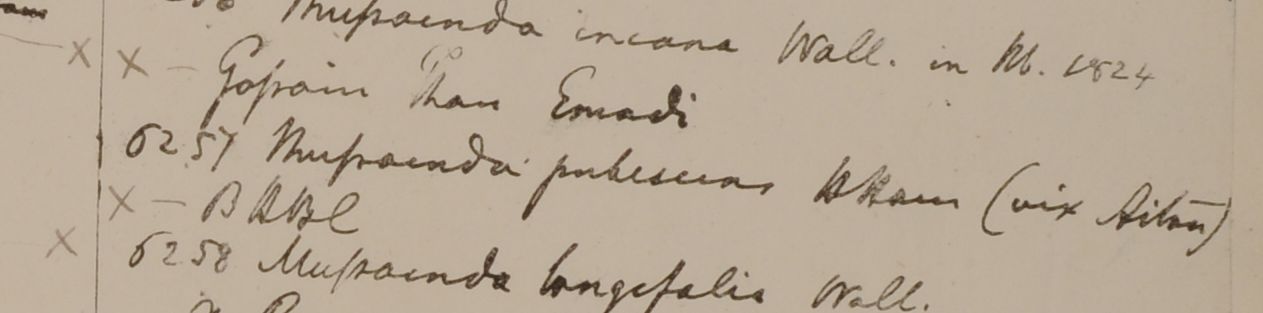 Mussaenda incana Wall. in Hb. 1824
× × – Gossain Than Emodi
6257 Mussaenda pubescens HHam (vix Aiton)
× – B HBC
× 6258 Mussaenda longifolia Wall.